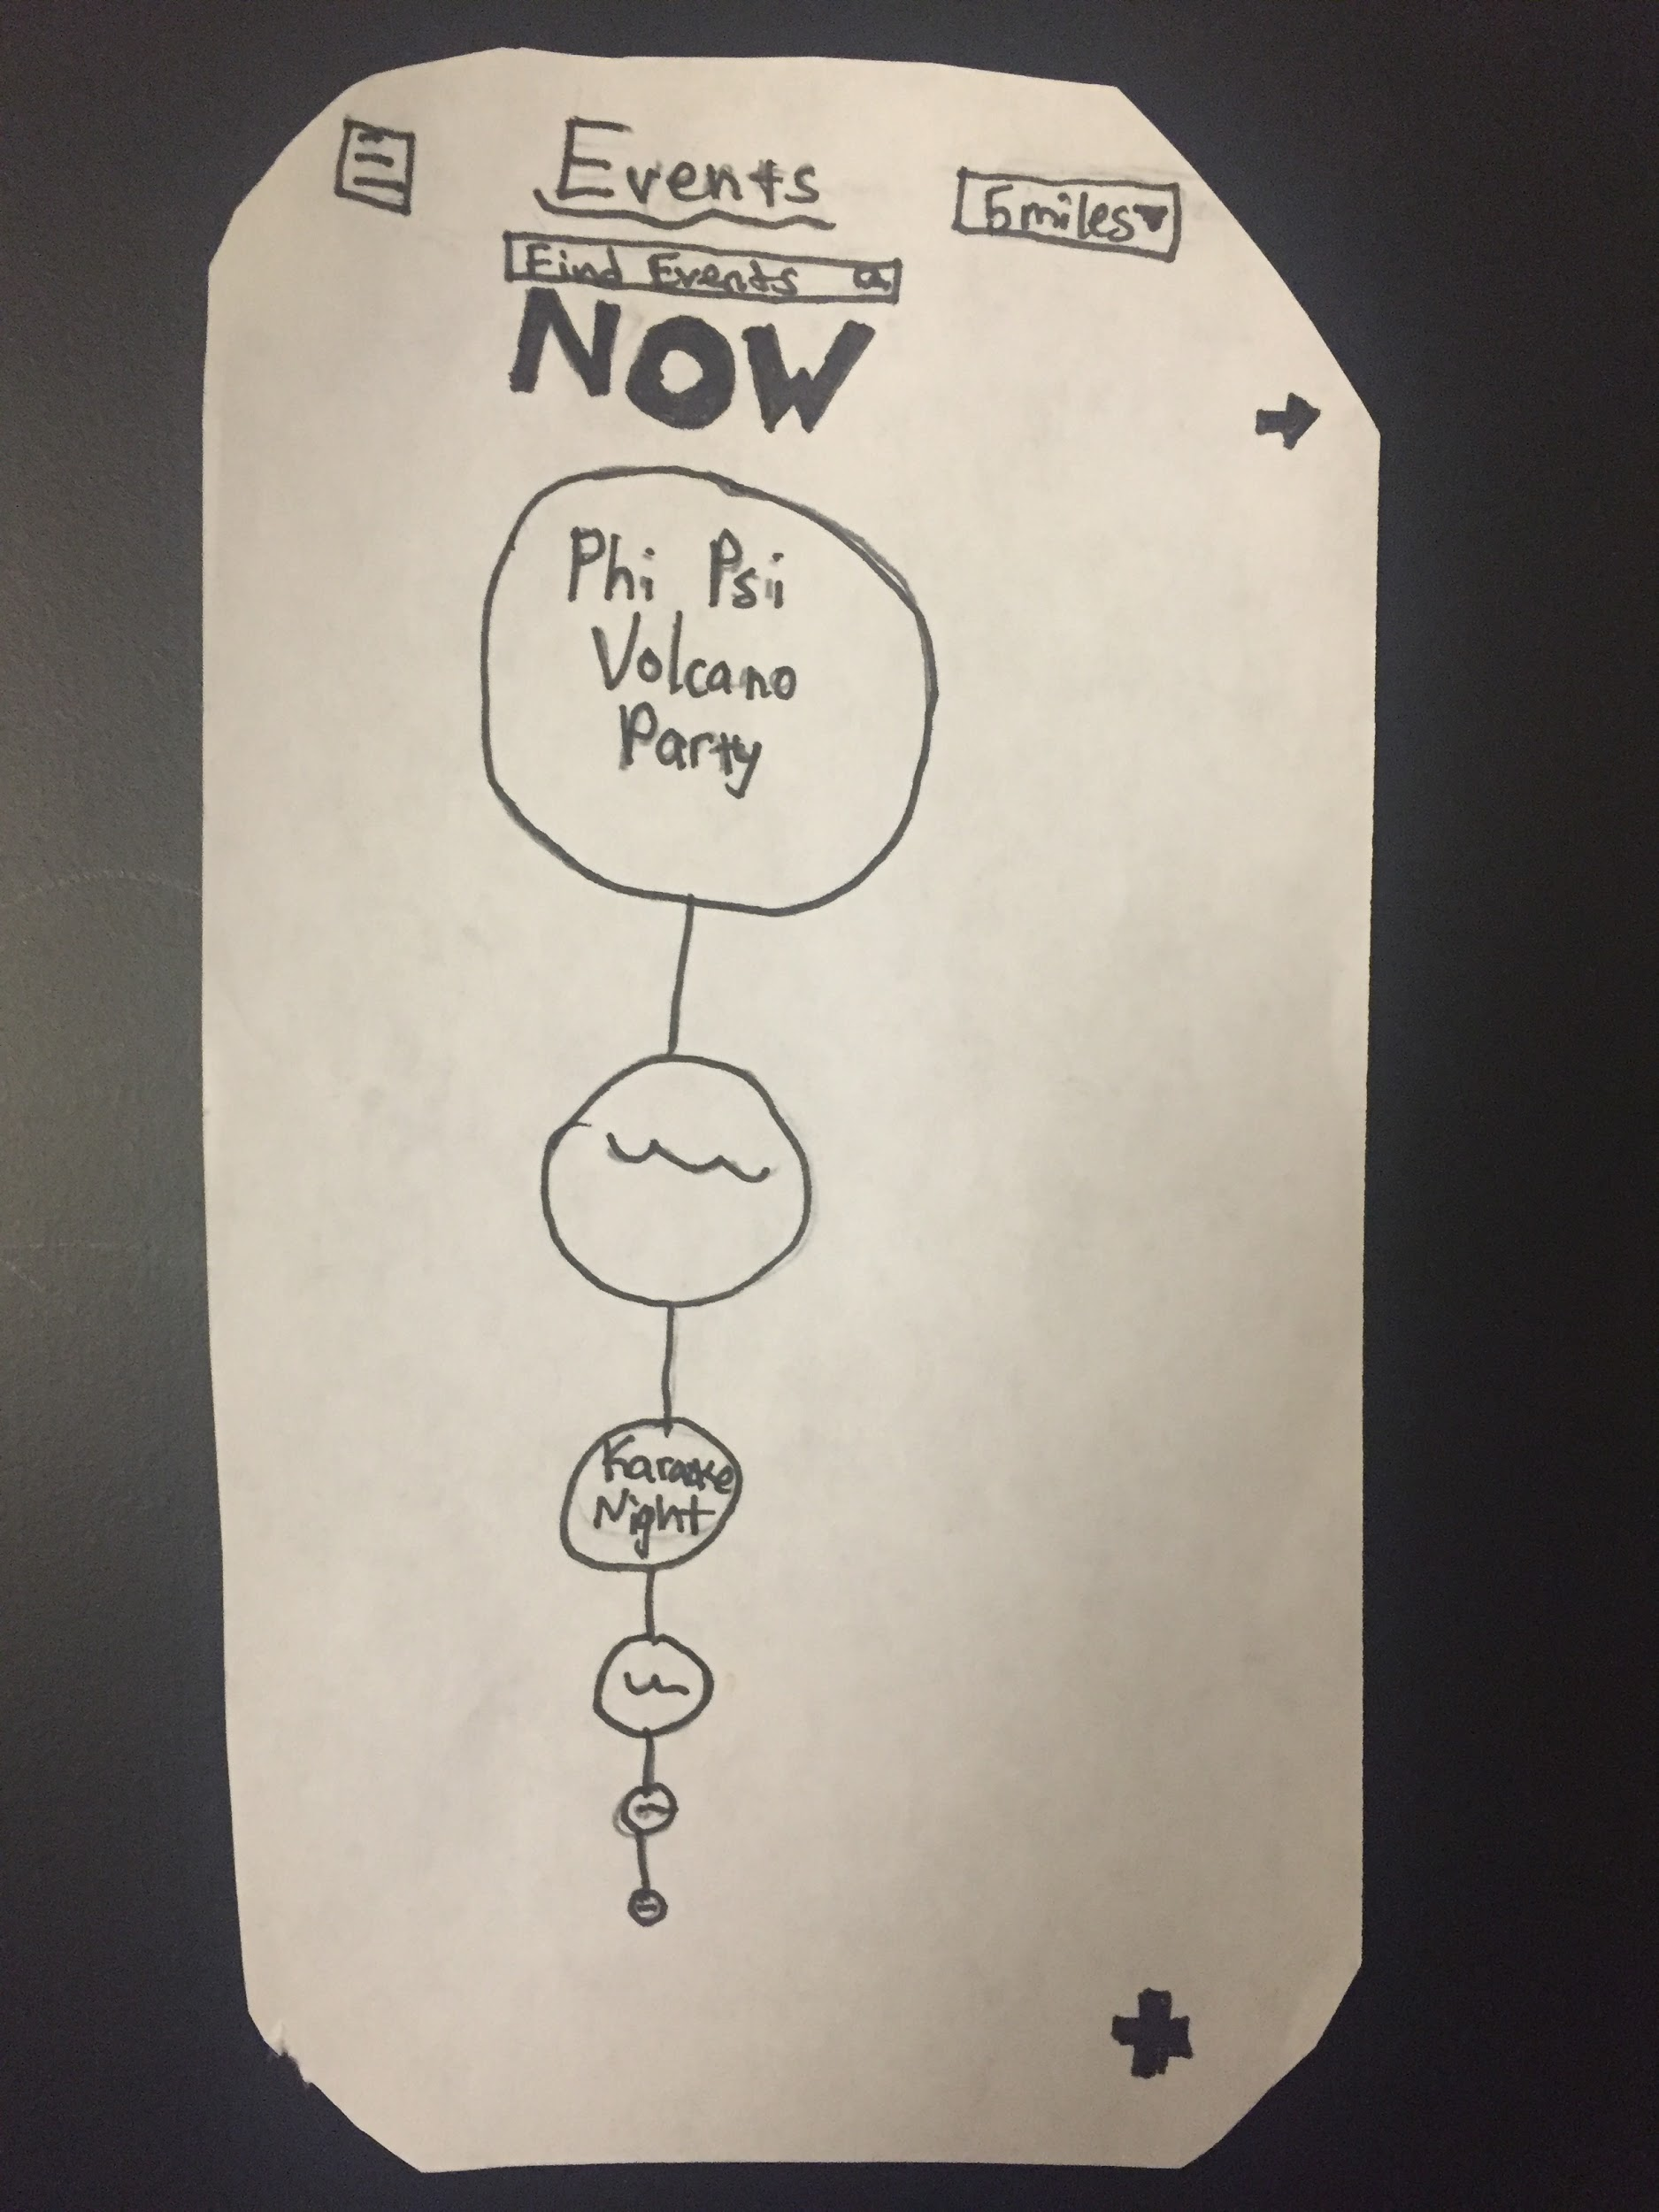 Events
5 miles
Find Events
NOW
Phi Psi
Volcano
Party
Karaoke
Night